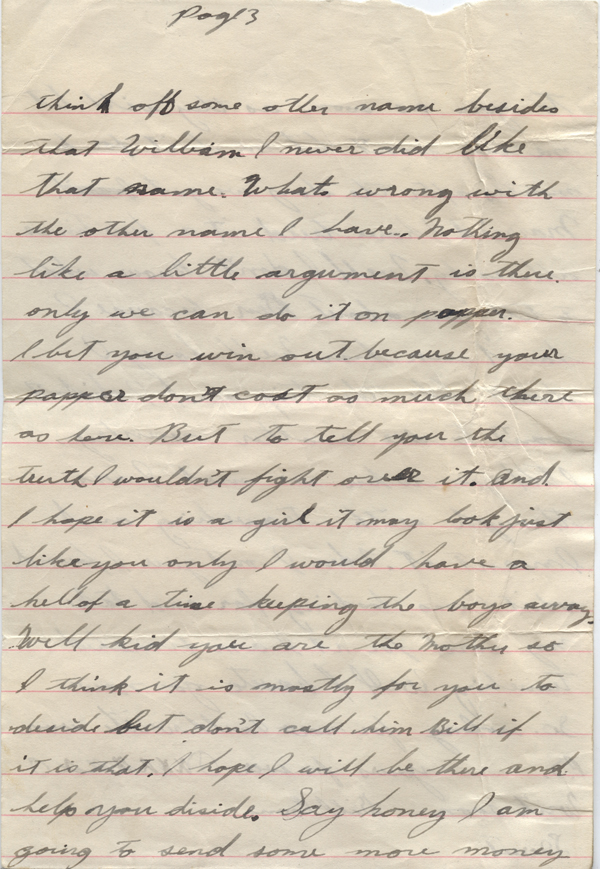 Page 3
think off some other name besides
that William I never did like
that name. Whats wrong with
the other name I have.. Nothing
like a little argument is there.
only we can do it on papper.
I bet you win out. because your
papper don't cost as much there
as here. But to tell you the
truth I wouldn't fight over it. and.
I hope it is a girl it may look just
like you only I would have a
hell of a time keeping the boys away.
Well kid you are the Mother so
I think it is mostly for you to
deside but don't call him Bill if
it is that. I hope I will be there and
help you diside. Say honey I am
going to send some more money